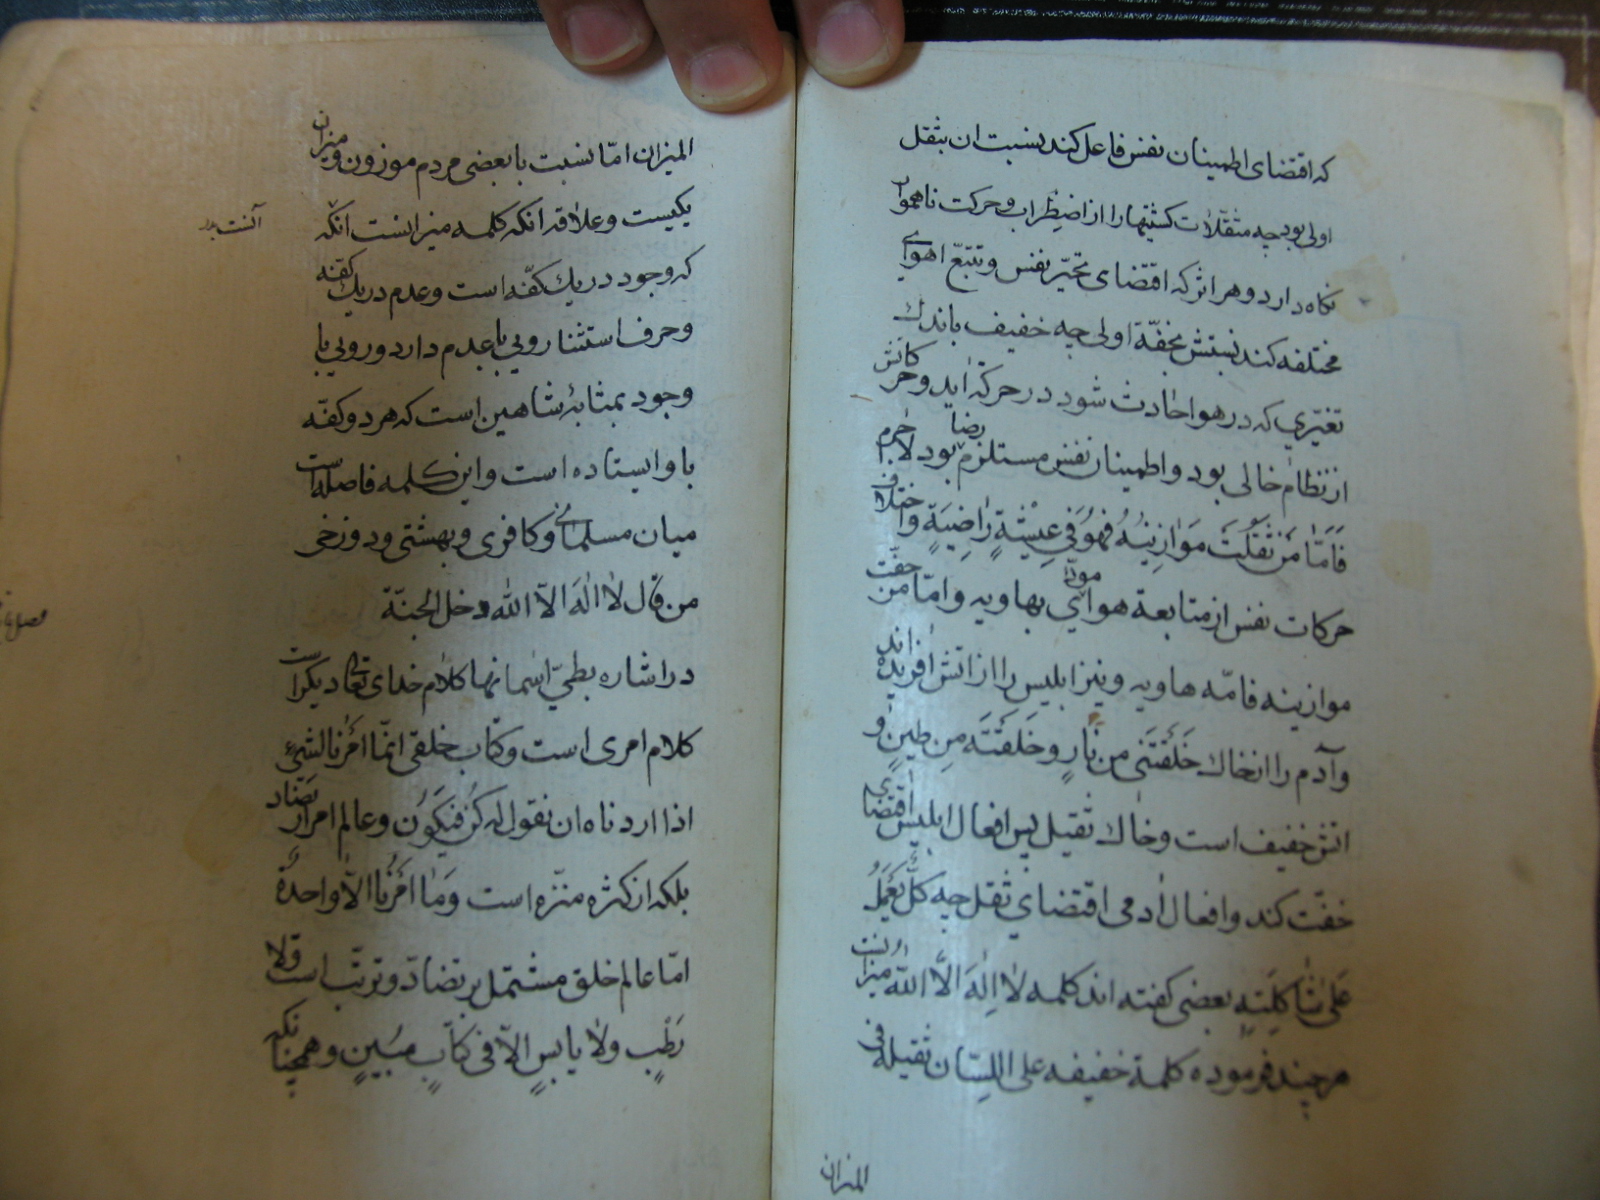 که اقتضای اطمینان نفس فاعل کند نسبت ان بثقل
اولی بود چه مثقلات کشتیها را از اضطراب و حرکت ناهموار
نکاه دارد و هر اثر که اقتضای تحیّر نفس و تتبّع اهوای
مختلفه کند نسبتش بخفّة اولی چه خفیف باندك
تغیّری که در هوا حادث شود در حرکة اید و حرکاتش
از نظام خالی بود و اطمینان نفس مستلزم رضا بود لاجرم
فَاَمّا مَنْ ثَقُلَتْ مَوَازِینُهُ فَهُوَ فِی عِیْشَةٍ رَاضِیَةٍ و اختلاف
حرکات نفس از متابعة هوا مودّی بهاویه و امّا من خفّت
موازینه فامّه هاویه و نیز ابلیس را از اتش افریده اند
و آدم را از خاك خَلَقْتَنی من نَّارٍ و خَلَقْتَه مِن طینٍ و
اتش خفیف است و خاك ثقیل پس افعال ابلیس اقتضای
خفّت کند و افعال ادمی اقتضای ثقل چه کلٌّ یَعْمَلُ
عَلی شَاکِلَتِهِ بعضی کفته اند کلمه لا اِلٰهَ اِلَّا اللهُ میزانست
هر چند فرموده کلمة خفیفه علی اللِسَان ثقیلة فی
المیزان
المیزان امّا نسبت با بعضی مردم موزون و میزان
یکیست و علاقه انکه کلمه میزانست انکه
آنست
که وجود در یك کفّه است و عدم در یك کفّه
و حرف استثنا رویی با عدم دارد و رویی با
وجود بمثابۀ شاهین است که هر دو کفّه
با و ایستاده است و این کلمه فاصله است
میان مسلمانی و کافری و بهشتی و دوزخی
من قال لا اِلٰهَ الّا الله دخل الجنّة
در اشاره بطیّ اسمانها کلام خدای تعالی دیکر است
کلام امری است و کتاب خلقی انّما اَمْرُنا لشیءٍ
اذا اردناه ان نقول له کُن فَیَکُوْن و عالم امر از تضاد
بلکه از کثره منزّه است وَمَا اَمْرُنَا اِلّا واحدةٌ
امّا عالم خلق مشتمل بر تضادّ و ترتّب است و لا
رَطْبٍ ولا یابسٍ الّا فی کتابٍ مبُینٍ و همچنانکه